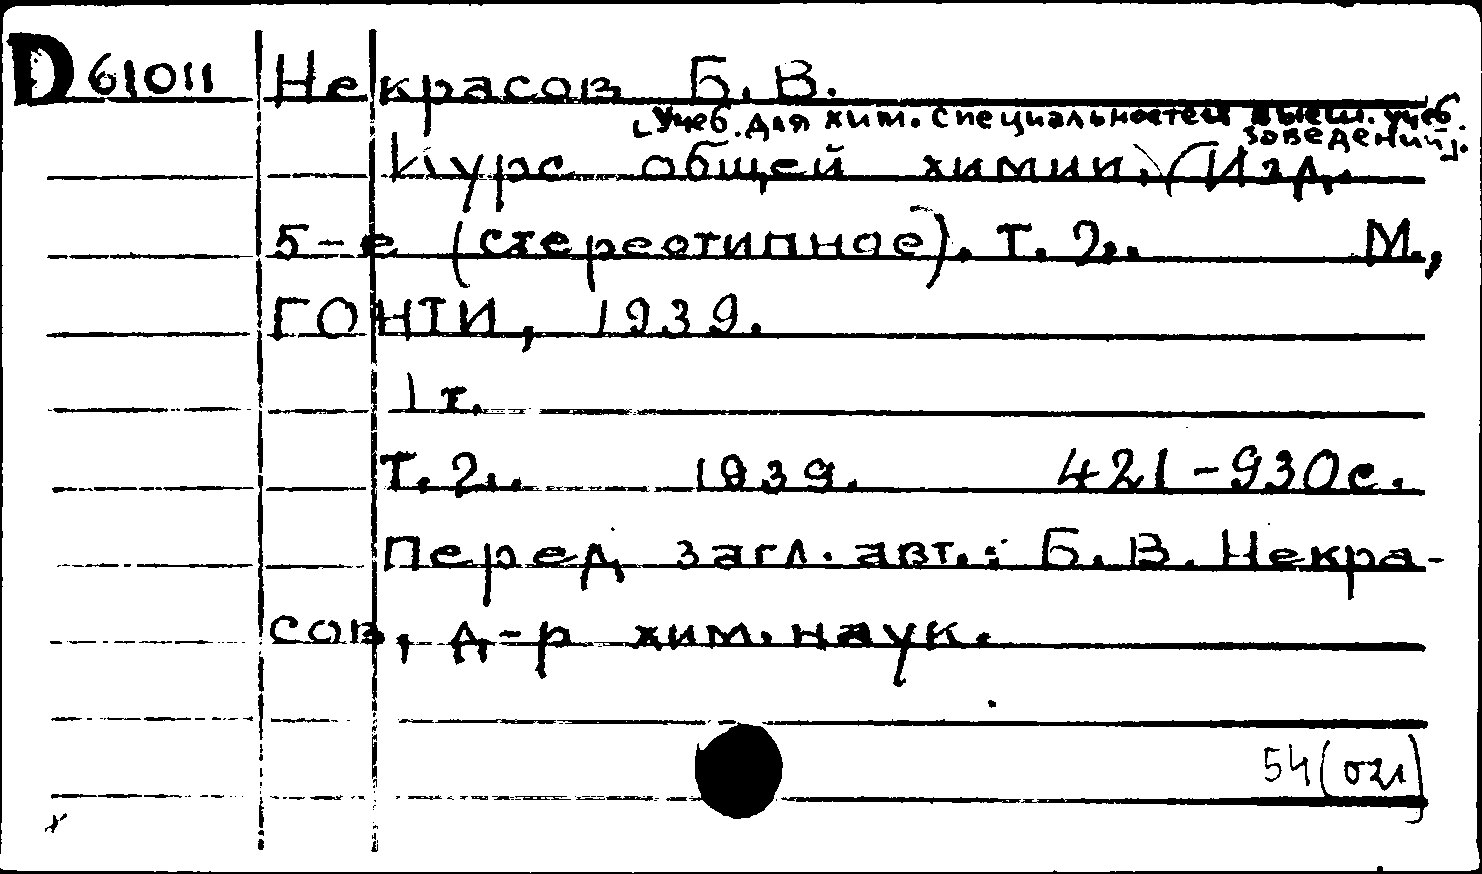 D 61011 Некрасов Б. В.
[Учеб. для хим. специальностей высш. учеб.
заведений].
Курс общей химии. (Изд.
5-е (стереотипное). Т. 2.. М.,
ГОНТИ, 1939.
1 т.
Т. 2.. 1939. 421-930с.
Перед загл. авт.: Б. В. Некра-
сов, д-р хим. наук.
54(021)